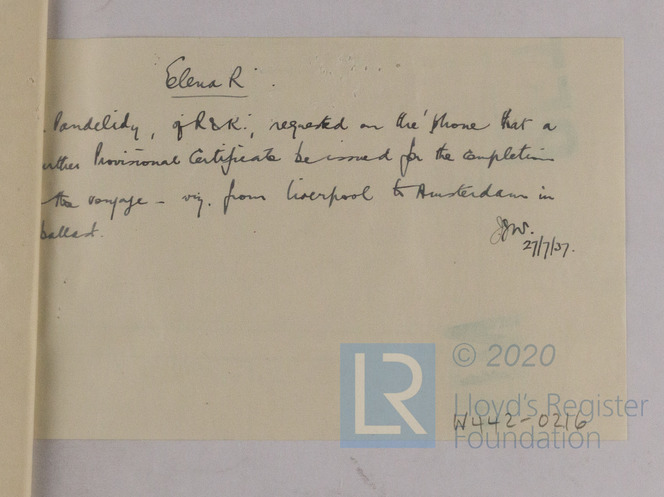 Elena R.
. Pandelidy, of R&K., requested on the 'phone that a
urther Provisional Certificate be issued for the completion
the voyage - viz. from Liverpool to Amsterdam in
ballast.
27/7/37.
LR
© 2020
Lloyd's Register
Foundation
W442-0216